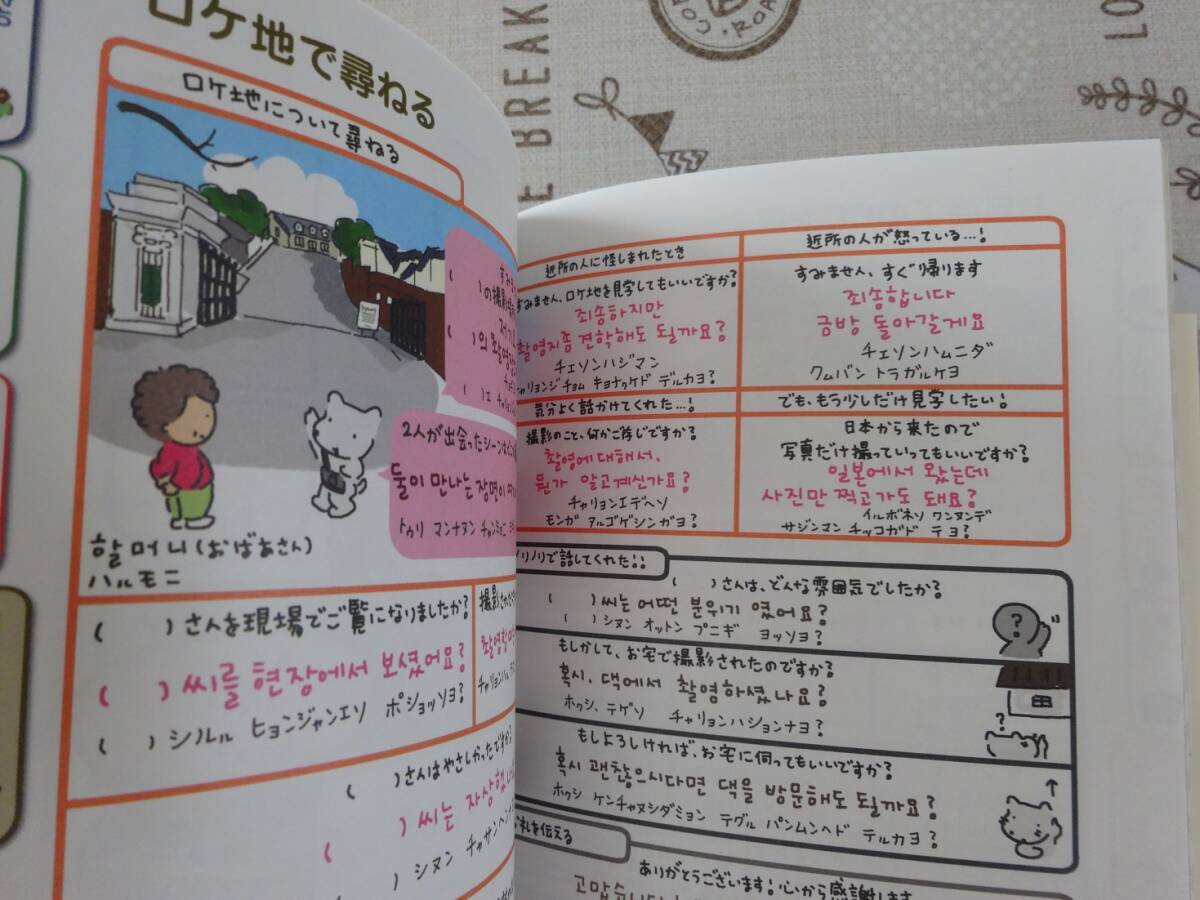 ロケ地で尋ねる
ロケ地について尋ねる
すみ
(　　)の撮影
저기
(　　)의 촬영
(　　)エ チャリョン
2人が出会ったシーンは
둘이 만나는 장면이
トゥリ マンナヌン チャンミョニ
할머니(おばあさん)
ハルモニ
(　　)さんを現場でご覧になりましたか?
(　　)씨를 현장에서 보셨어요?
(　　)シルル ヒョンジャンエソ ポショッソヨ?
撮影され
촬영할
チャリョンハル
(　　)さんはやさしかったですか?
(　　)씨는 자상했
(　　)シヌン チャサンヘン
COF
ROA
E BREAK
LO
近所の人に怪しまれたとき
すみません、ロケ地を見学してもいいですか?
죄송하지만
촬영지좀 견학해도 될까요?
チェソンハジマン
チャリョンジチョム キョナッケド デルカヨ?
近所の人が怒っている…!
すみません、すぐ帰ります
죄송합니다
금방 돌아갈게요
チェソンハムニダ
クムバン トラガルケヨ
気分よく話かけてくれた…!
撮影のこと、何かご存じですか?
촬영에대해서,
뭔가 알고계신가요?
チャリョンエデヘソ
モンガ アルゴゲシンガヨ?
でも、もう少しだけ見学したい!
日本から来たので
写真だけ撮っていってもいいですか?
일본에서 왔는데
사진만 찍고가도 돼요?
イルボネソ ワンヌンデ
サジンマン チッコガド テヨ?
ノリノリで話してくれた!!
(　　)さんは、どんな雰囲気でしたか?
(　　)씨는 어떤 분위기 였어요?
(　　)シヌン オットン プニギ ヨッソヨ?
?
もしかして、お宅で撮影されたのですか?
혹시, 댁에서 촬영하셨나요?
ホクシ、テゲソ チャリョンハショナヨ?
?
もしよろしければ、お宅に伺ってもいいですか?
혹시 괜찮으시다면 댁을 방문해도 될까요?
ホクシ ケンチャヌシダミョン テグル パンムンヘド テルカヨ?
礼を伝える
ありがとうございます!心から感謝します
고맙습니다